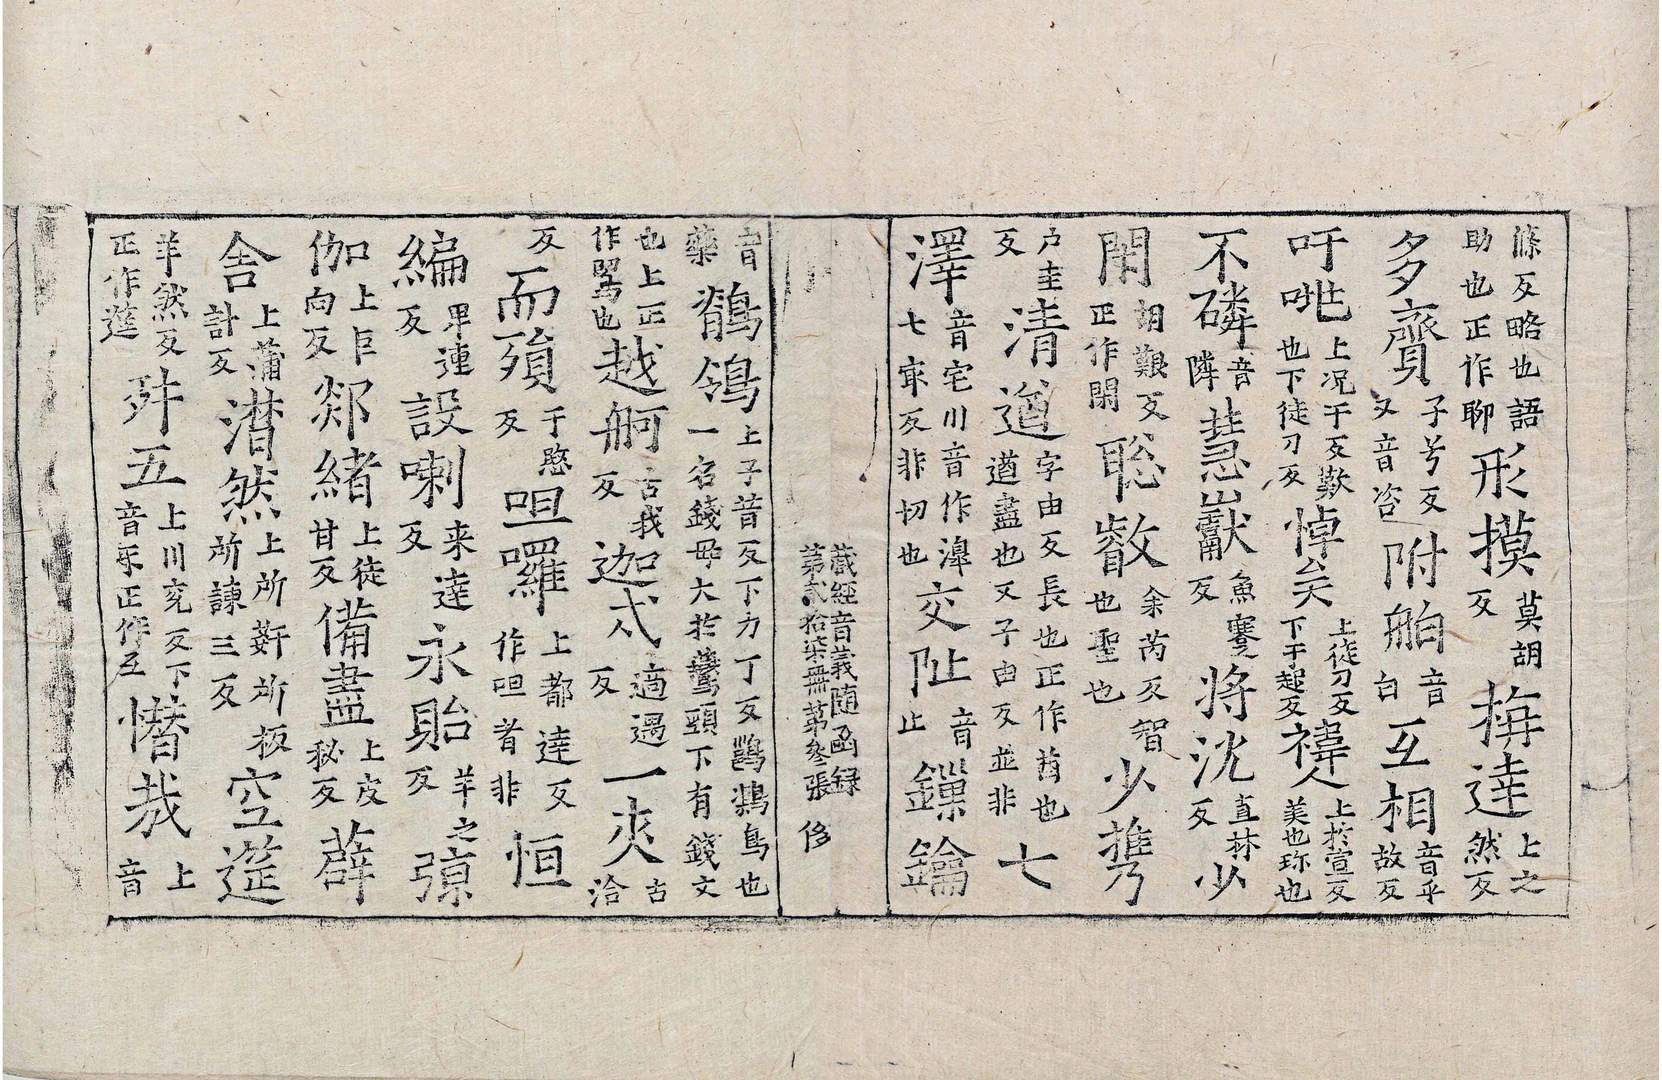 滌反略也語助也正作聊形摸莫胡反栴達上之然反
多齎子兮反又音咨附舶音白互相音乎故反
吁咷上况于反歎也下徒刀反悼矣上徒刀反下于起反褘人上於宣反美也珎也
不磷音隣慧巘魚蹇反将沈直林反少
閑胡艱反正作閑聡叡余芮反智也聖也少攜
户圭反清遒字由反長也正作酋也遒盡也又子由反並非七
澤音宅川音作㶖七㝡反非切也交阯音止鏁鑰
藏經音義随函録第貳拾柒無苐叄張 侈
音藥鶺鴒上子昔反下力丁反鸊鷉鳥也一名錢毋大於鷰頸下有錢文
也上正作䳢也越舸古我反迦忒適遇反一夾古洽
反而殞于愍反呾囉上都達反作呾者非恒
編卑連反設喇来達反永貽羊之反諒
伽上巨向反郯緒上徒甘反備盡上皮秘反薜
舍上蒲計反潸然上所姧所板所諫三反空莚
羊然反正作莚舛五上川兖反下音乐正作互憯哉上音